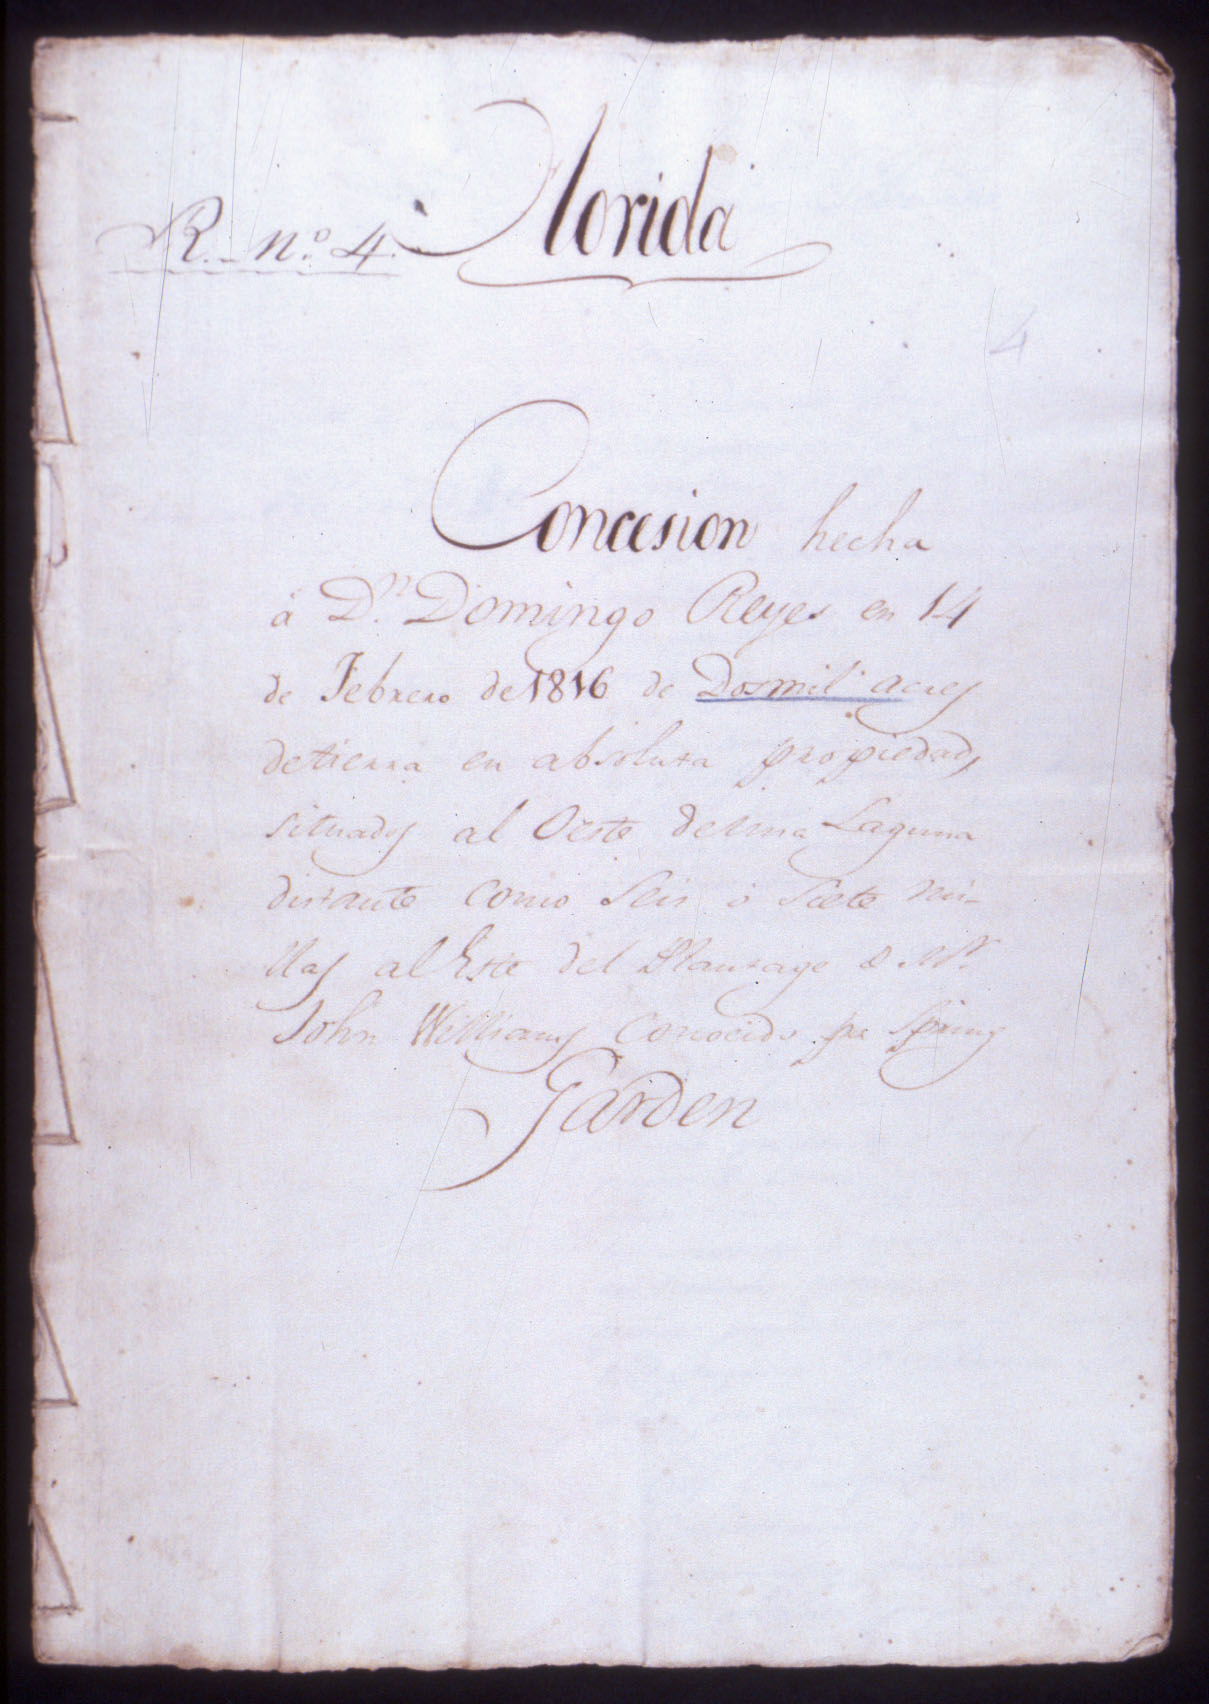 Florida
R. nº 4.
4
Concesion hecha
á Dn. Domingo Reyes en 14
de Febrero de 1816 de Dosmil acres
de tierra en absoluta propiedad,
situados al Oeste de una Laguna
distante como seis ó siete mi-
llas al Este del Plantage de Mr.
John Williams conocido pr Spring
Garden